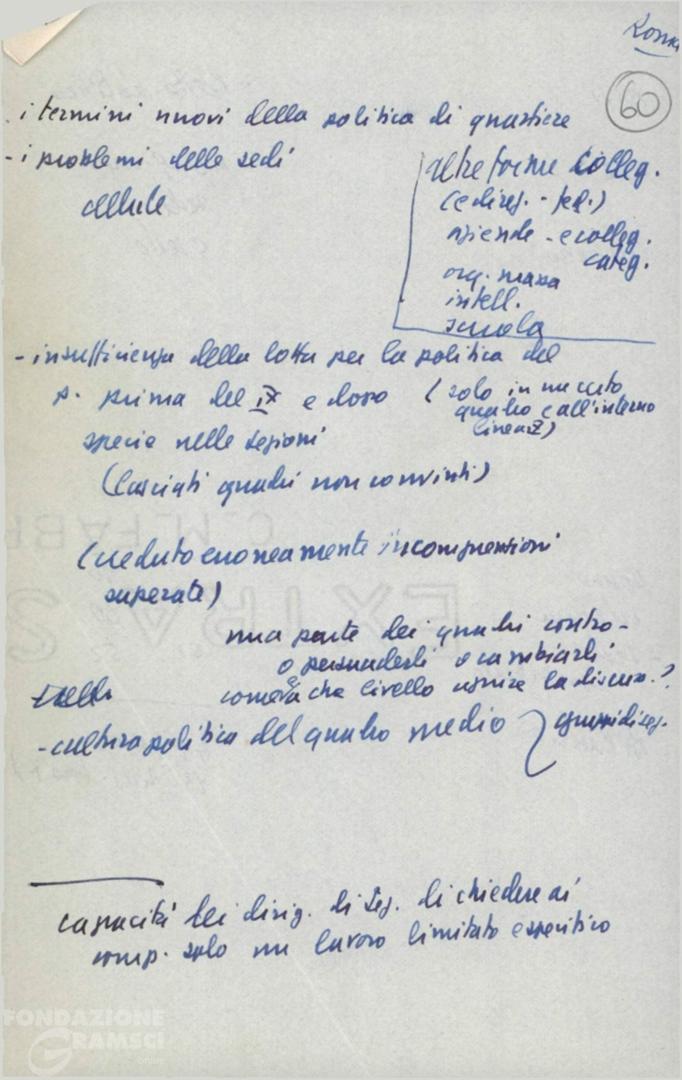 Roma
60
- i termini nuovi della politica di quartiere
- i problemi delle sedi
cellule
altre forme colleg.
aziende - e colleg.
categ.
org. massa
intell.
scuola
- insufficienza della lotta per la politica del
p. prima del IX e dopo
(solo in un certo
quadro e all'interno
specie nelle sezioni
(lasciati quadri non convinti)
(creduto erroneamente incomprensioni
superate)
una parte dei quadri contro -
o persuaderli o cambiarli
che livello
la discuss.?
- cultura politica del quadro medio
capacità dei dirig. di sez. di chiedere ai
comp. solo un lavoro limitato e specifico
FONDAZIONE
GRAMSCI